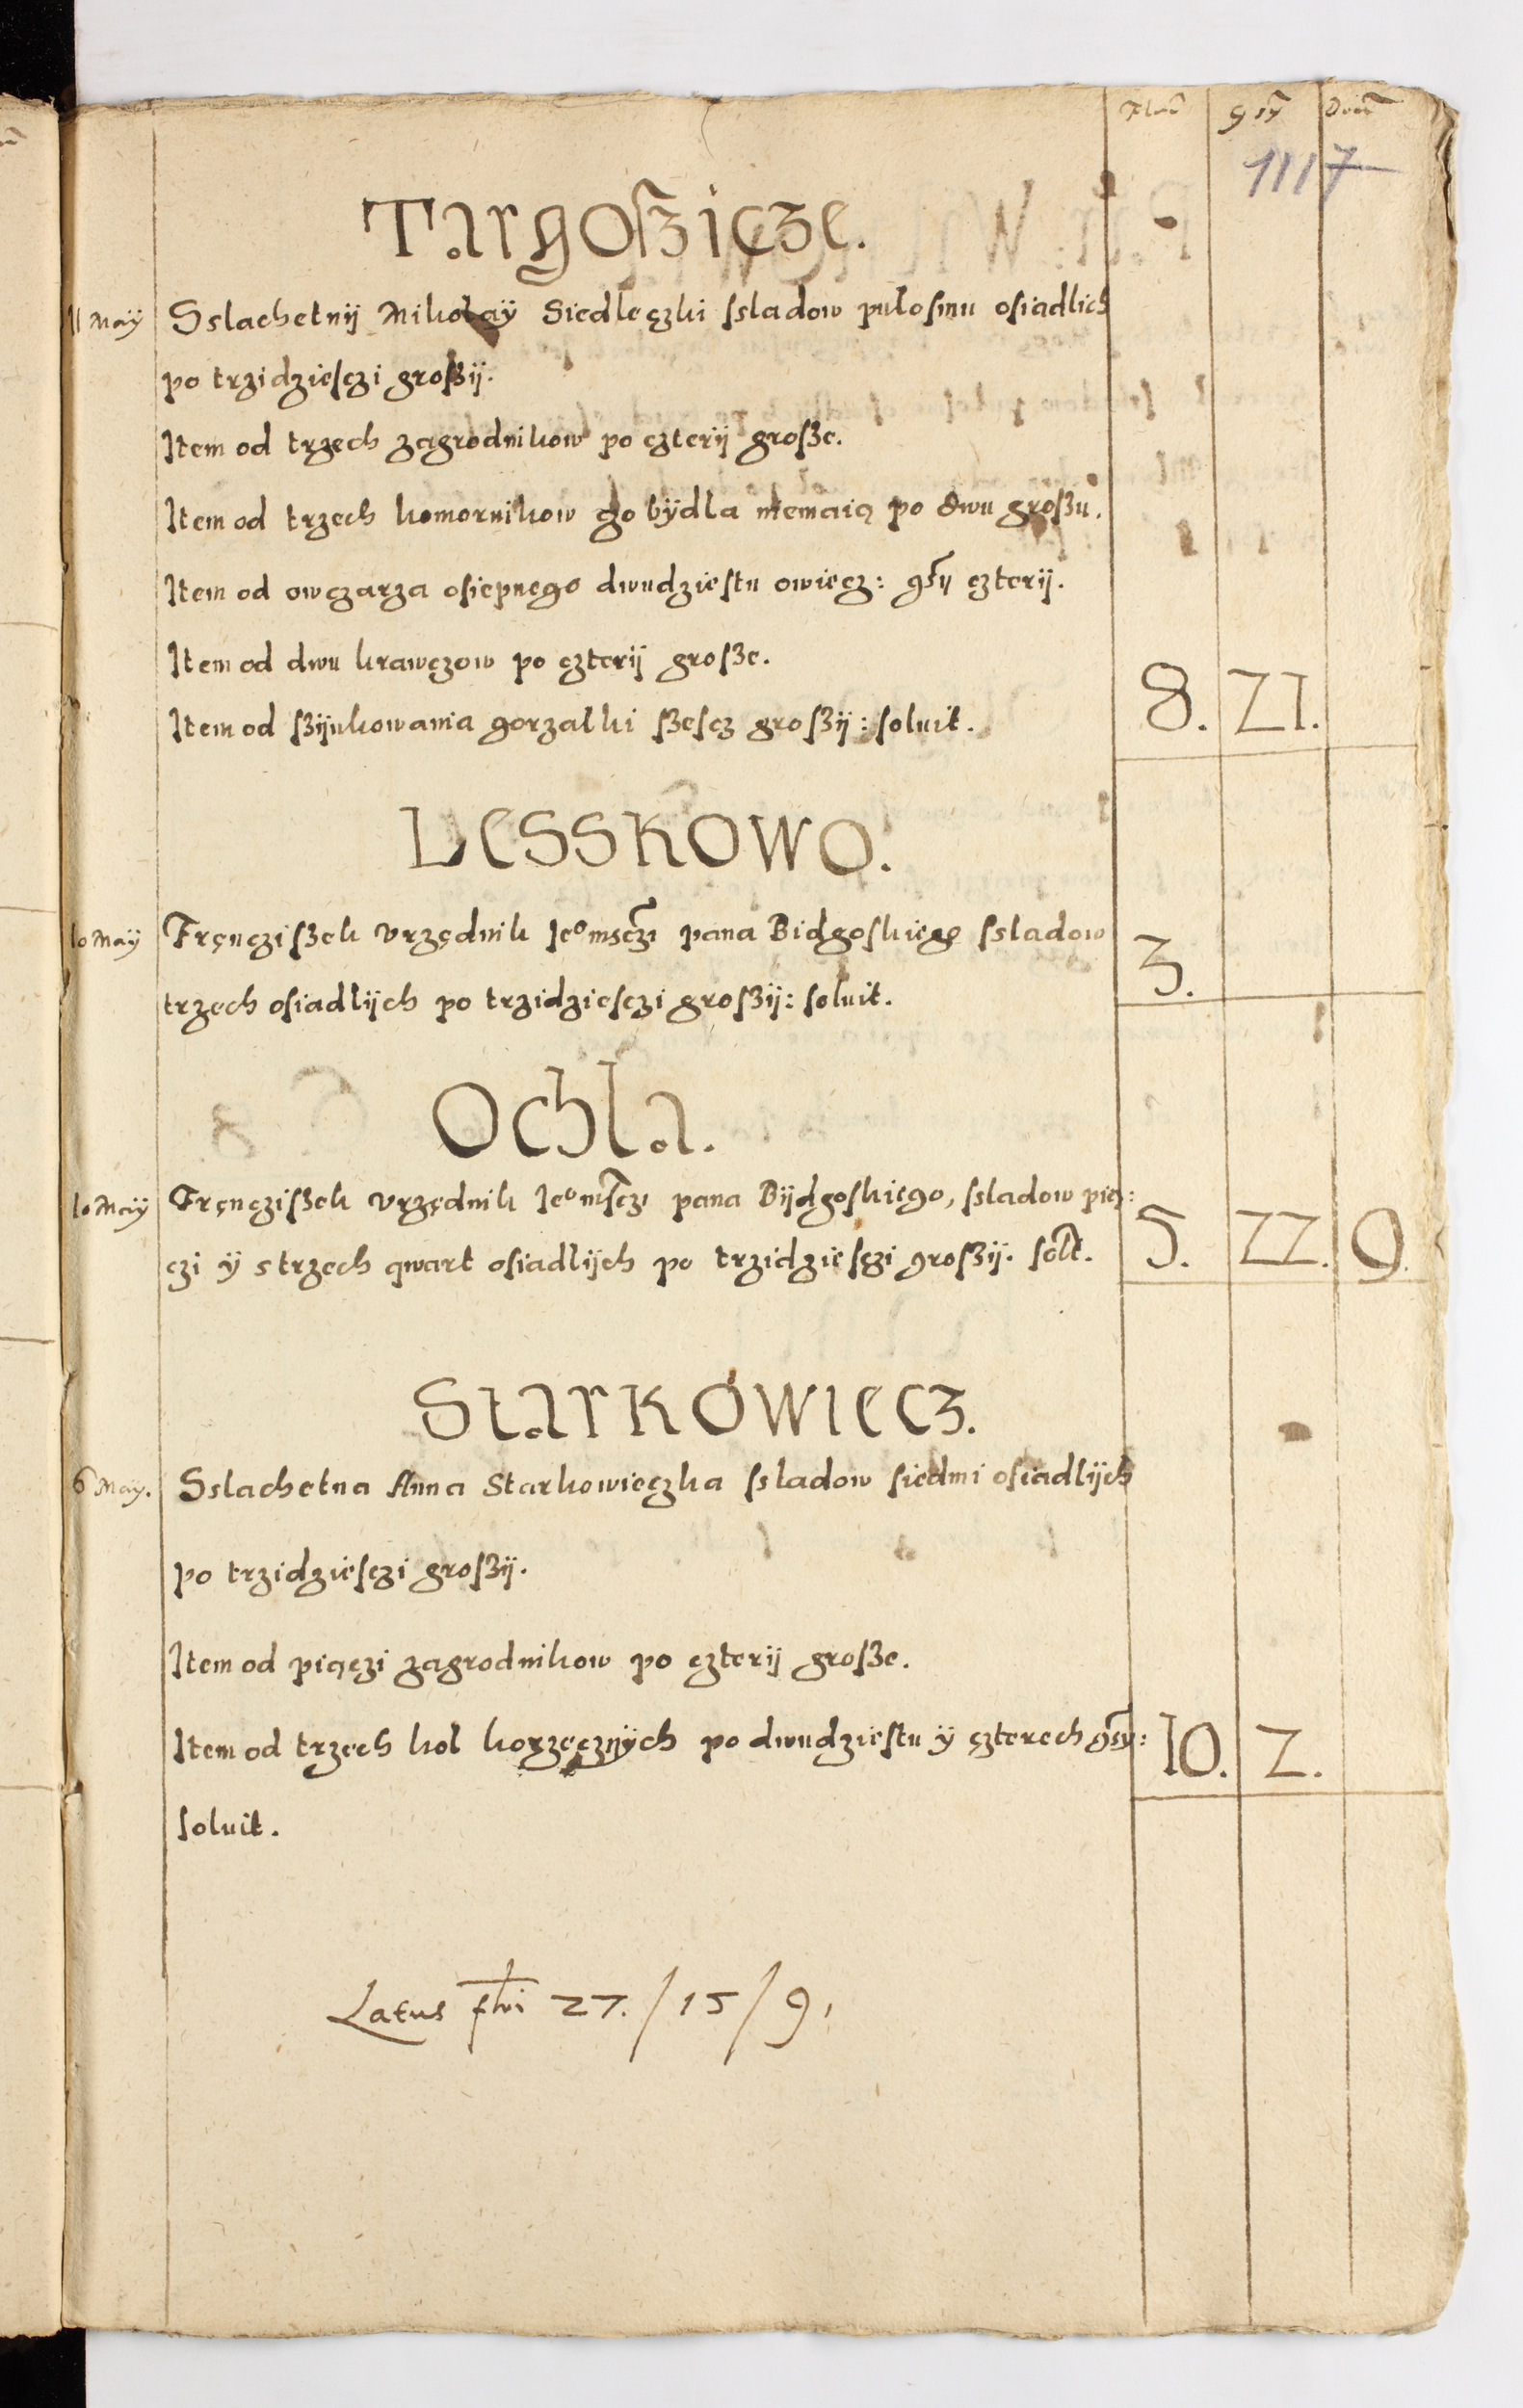 Flor gsy Denar
1117
Targoßicze.
11 Maÿ Sslachetnÿ Mikołaÿ Siedleczki ſsladow pułosmu osiadlich
po trzidzieſczi großÿ.
Item od trzech zagrodnikow po czterÿ große.
Item od trzech komornikow czo bÿdla niemaią po dwu großu.
Item od owczarza osiepnego dwudzieſtu owiecz: gſy czterÿ.
Item od dwu krawczow po czterÿ große.
Item od ßÿnkowania gorzalki ßeſcz großÿ: soluit. 8. 21.
Lesskowo.
10 Maÿ Frąnczißek vrzędnik Jeo mſczi pana Bidgoskiego ſsladow 3.
trzech osiadlÿch po trzidzieſczi großÿ: soluit.
Ochla.
10 Maÿ Frąnczißek vrzędnik Jeo mſczi pana Bÿdgoskiego, ſsladow pią:
czi ÿ strzech qwart osiadlÿch po trzidzieſczi großÿ. solt. 5. 22. 9.
Starkowiecz.
6 Maÿ. Sslachetna Anna Starkowieczka ſsladow siedmi osiadlÿch
po trzidzieſczi großÿ.
Item od piączi zagrodnikow po czterÿ große.
Item od trzech kol korzecznÿch po dwudzieſtu ÿ czterech gsy: 10. 2.
soluit.
Latus flni 27. / 15 / 9.